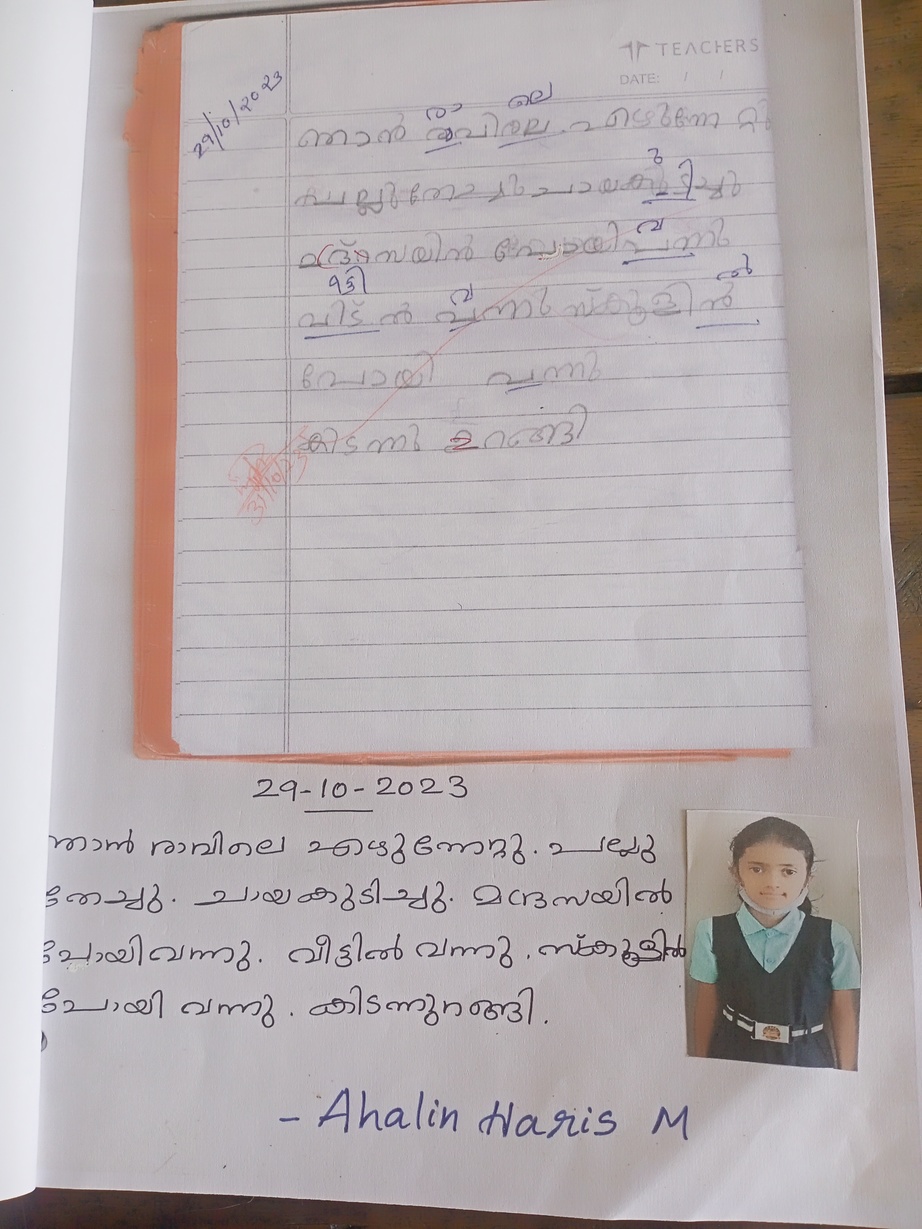 TEACHERS
DATE: / /
29/10/2023
രാ ലെ
ഞാൻ രവിലെ എഴുന്നേ റ്റു
പല്ലുതേച്ചു ചായകുടിച്ചു
മദ്രസയിൽ പോയി വന്നു
വിട് ൽ വന്നു സ്കൂളിൻ
പോയി വന്നു
കിടന്നു ഉറങ്ങി
31/10/23
29-10-2023
ഞാൻ രാവിലെ എഴുന്നേറ്റു. പല്ലു
തേച്ചു. ചായകുടിച്ചു. മദ്രസയിൽ
പോയിവന്നു. വീട്ടിൽ വന്നു. സ്കൂളിൽ
പോയി വന്നു. കിടന്നുറങ്ങി.
- Ahalin Haris M